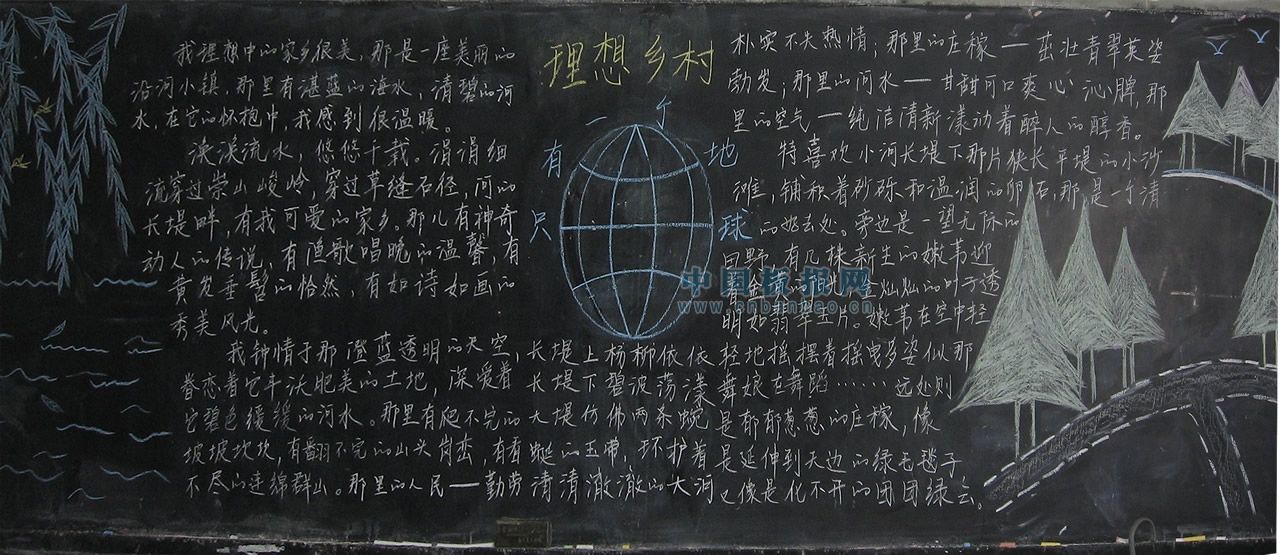 理想乡村
我理想中的家乡很美，那是一座美丽的
沿河小镇，那里有湛蓝的海水，清碧的河
水，在它的怀抱中，我感到很温暖。
溪溪流水，悠悠千载。涓涓细
流穿过崇山峻岭，穿过草缝石径，河的
长堤畔，有我可爱的家乡。那儿有神奇
动人的传说，有渔歌唱晚的温馨，有
黄发垂髫的怡然，有如诗如画的
秀美风光。
我钟情于那澄蓝透明的天空，
眷恋着它丰沃肥美的土地，深爱着
它碧色缓缓的河水。那里有爬不完的
坡坡坎坎，有翻不完的山头岗峦，有看
不尽的连绵群山。那里的人民——勤劳
只有一个地球
长堤上杨柳依依
长堤下碧波荡漾
大堤仿佛两条蜿
蜒的玉带，环护着
清清澈澈的大河
朴实不失热情；那里的庄稼——茁壮青翠英姿
勃发；那里的河水——甘甜可口爽心沁脾，那
里的空气—纯洁清新漾动着醉人的醇香。
特喜欢小河长堤下那片狭长平堤的小沙
滩，铺积着砂砾和温润的卵石，那是一个清
的好去处。旁边是一望无际的
田野，有几株新生的嫩苇迎
灿灿的叶子透
明如翡翠玉片。嫩苇在空中轻
轻地摇摆着摇曳多姿似那
舞娘在舞蹈……远处则
是郁郁葱葱的庄稼，像
是延伸到天边的绿毛毯子
又像是化不开的团团绿云。
中国板报网
www.cnbanbao.cn